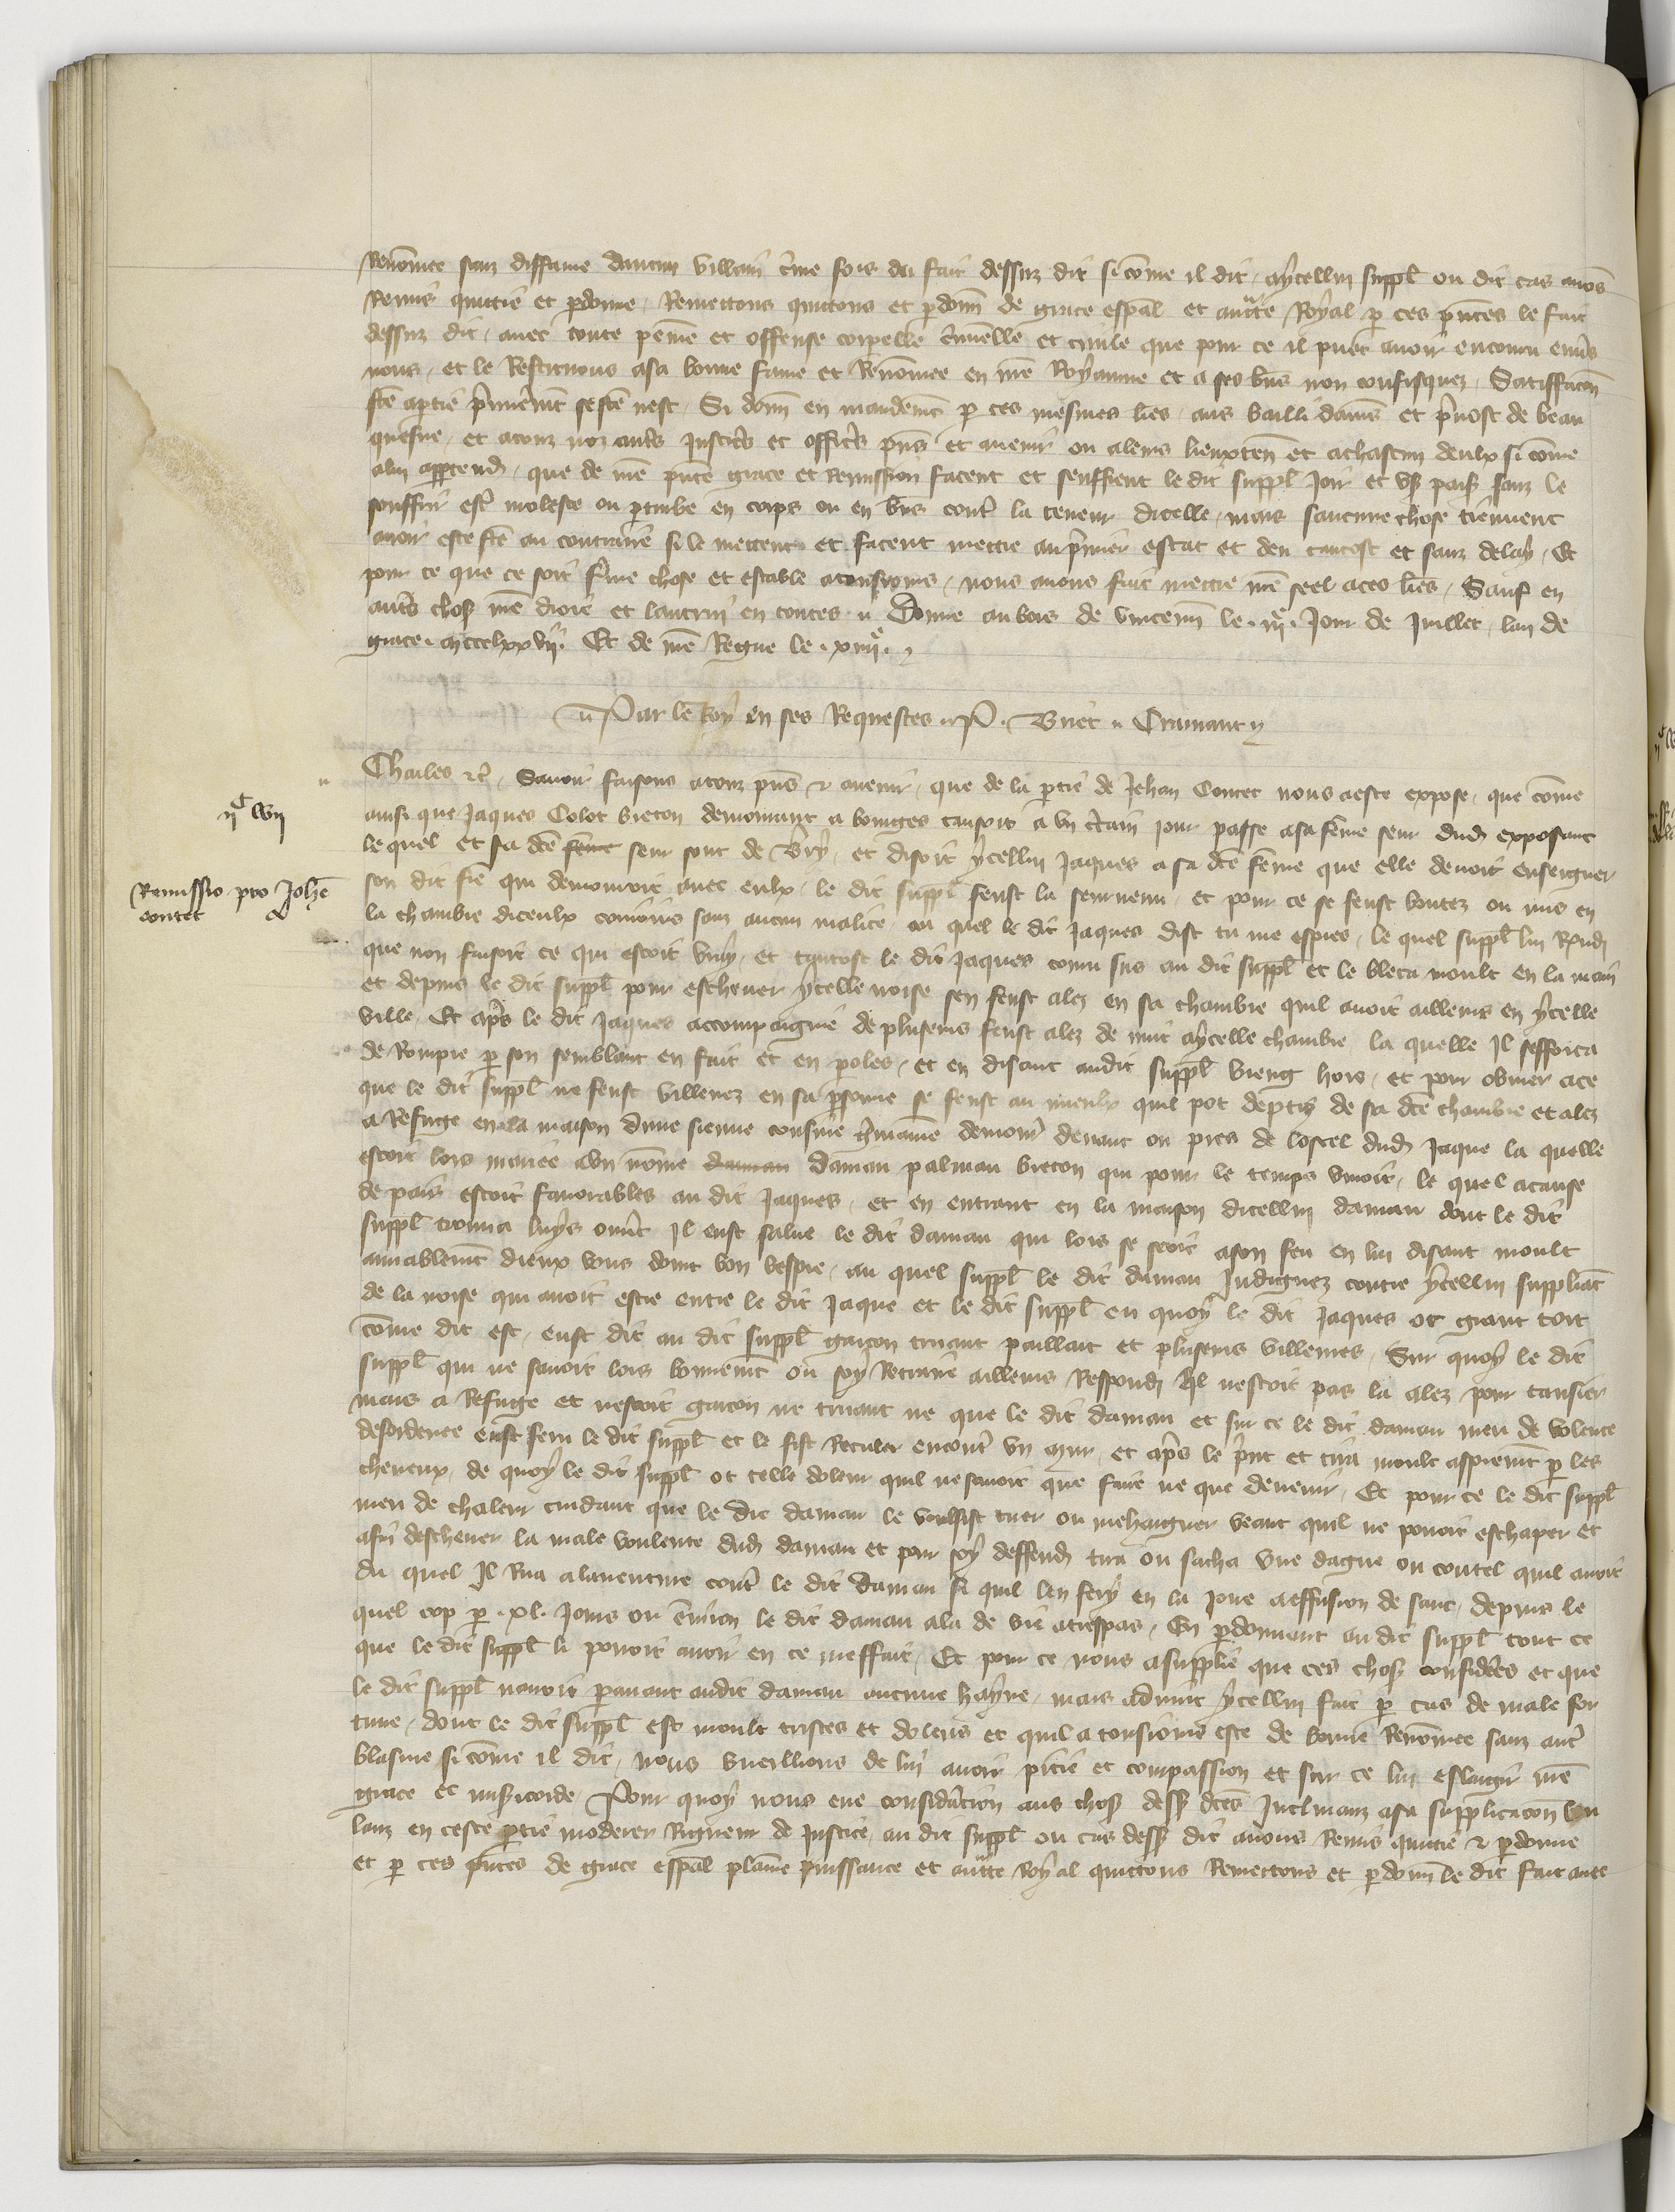 Renōmee sanz diffame daucun villain c̄me fors du fait dessuz dit si cōme il dit / aycellui suppl ou dit cas auōs
Remis quittie et pdonne / Remettons quittons et pdonn̄ de grace esp̄al et auctē Royal p ces pn̄tes le fait
dessuz dit / auec toute peine et offense corporelle c̄minelle et ciuile que pour ce il puet auoir encouru enuers
nous / et le Restituons a sa bonne fame et Renōmee en nr̄e Royaume et a ses biēs non confisquez / Satiffacōn
fcē a ptie p̄mierem̄t se fcē nest / Si donn̄ en mandem̄t p ces mesmes lr̄es / aus bailli damiēs et p̄uost de beau
quesne / et a touz noz autr̄s justic̄s et offic̄s pn̄s et auenir ou a leurs lieuxten̄ et a chascun deulx si cōme
a lui apptendr̄ / que de nr̄e pn̄te grace et Remission facent et seuffrent le dit suppl joir et vser paisib sanz le
souffrir estr̄ moleste ou ptourbe en corps ou en biēs contr̄ la teneur dicelle / mais saucune chose tiennent
auoir este fcē au contraire si le mettent et facent mettre au p̄mier estat et deu tantost et sanz delay / Et
pour ce que ce soit ferme chose et estable a tousiours / nous auons fait mettre nr̄e seel a ces lr̄es / Sauf en
autr̄s chos nr̄e droit et lautrui en toutes // Donne au bois de vincenn̄ le . iije . jour de juillet / lan de
grace . mccclxxvij . Et de nr̄e Regne le . xiiije .
Par le Roy en ses Requestes // P . Buet // Cramant
Charles etc̄ / Sauoir faisons a touz pn̄s et auenir / que de la ptie de Jehan Contet nous a este expose / que cōme
ainsi que Jaques Colot breton demourant a bourges tansoit a vn c̄tain jour passe a sa fēme seur dud exposant
le quel et sa dcē fēme seur sont de Bry / et disoit ycellui Jaques a sa dcē fēme que elle deuoit enseigner
son dit fr̄e qui demouroit auec eulx / le dit suppl feust la seuruenu / et pour ce se feust boutez ou mis en
la chambre diceulx conioins sanz aucun malice / au quel le dit Jaques dist tu me espies / le quel suppl lui Respond
que non faisoit ce qui estoit vray / et tantost le dit Jaques couru sus au dit suppl et le bleca moult en la main
et depuis le dit suppl pour escheuer ycelle noise sen feust alez en sa chambre quil auoit ailleurs en ycelle
ville / Et apr̄s le dit Jaques accompaigne de pluseurs feust alez de nuit a ycelle chambre la quelle Il sefforca
de Rompre p son semblant en fait et en poles / et en disant audit suppl vieng hors / et pour obuier a ce
que le dit suppl ne feust villenez en sa psonne se feust au mieulx quil pot deptis de sa dcē chambre et alez
a Refuge en la maison dune sienne cousine germaine demour̄ deuant ou pres de lostel dud Jaque la quelle
estoit lors mariee a vn nōme daman daman palman breton qui pour le temps viuoit / le quel a cause
de pais estoit fauorables au dit Jaques / et en entrant en la maison dicellui daman dont le dit
suppl trouua luys ouuert Il eust salue le dit daman qui lors se seoit a son feu en lui disant moult
amiablem̄t dieux vous doint bon vespre / au quel suppl le dit daman Indignez contre ycellui suppliāt
de la noise qui auoit este entre le dit Jaque et le dit suppl en quoy le dit Jaques ot grant tort
cōme dit est / eust dit au dit suppl garcon truant paillart et pluseurs villenies / Sur quoy le dit
suppl qui ne sauoit lors bonnem̄t ou soy Retraire ailleurs Respond Il nestoit pas la alez pour tansier
mais a Refuge et nestoit garcon ne truant ne que le dit daman et sur ce le dit daman meu de volente
desordenee eust feru le dit suppl et le fist Reculer encontr̄ vn mur / et apr̄s le print et tira moult asprem̄t p les
cheueux / de quoy le dit suppl ot telle doleur quil ne sauoit que faire ne que deuenir / Et pour ce le dit suppl
meu de chaleur cuidant que le dit daman le voulsist tuer ou mehaigner veant quil ne pouoit eschaper et
afin descheuer la male voulente dud daman et pour soy deffend tira ou sacha vne dague ou coutel quil auoit
du quel Il Rua a lauenture contr̄ le dit daman si quil len fery en la joue a effusion de sanc / depuis le
quel cop p . xl . jours ou enuiron le dit daman ala de vie a trespas / En pdonnant au dit suppl tout ce
que le dit suppl li pouoit auoir en ce meffait / Et pour ce nous a supplie que ces chos considerees et que
le dit suppl nauoit pauant audit daman aucune hayne / mais aduint ycellui fait p cas de male for
tune / dont le dit suppl est moult tristes et dolens et quil a tousiours este de bonne Renōmee sanz autr̄
blasme si cōme il dit / nous vueillions de lui auoir pitie et compassion et sur ce lui eslargir nr̄e
grace et mis̄icorde / Pour quoy nous eue consideracion aus chos dess dcēs Inclinanz a sa supplicacōn vou
lanz en ceste ptie moderer Rigueur de justice / au dit suppl ou cas dess dit auons Remis quittie et pdonne
et p ces pn̄tes de grace esp̄al plaine puissance et auctē Royal quittons Remettons et pdonn̄ le dit fait auec
Remissio pro Johe
contet